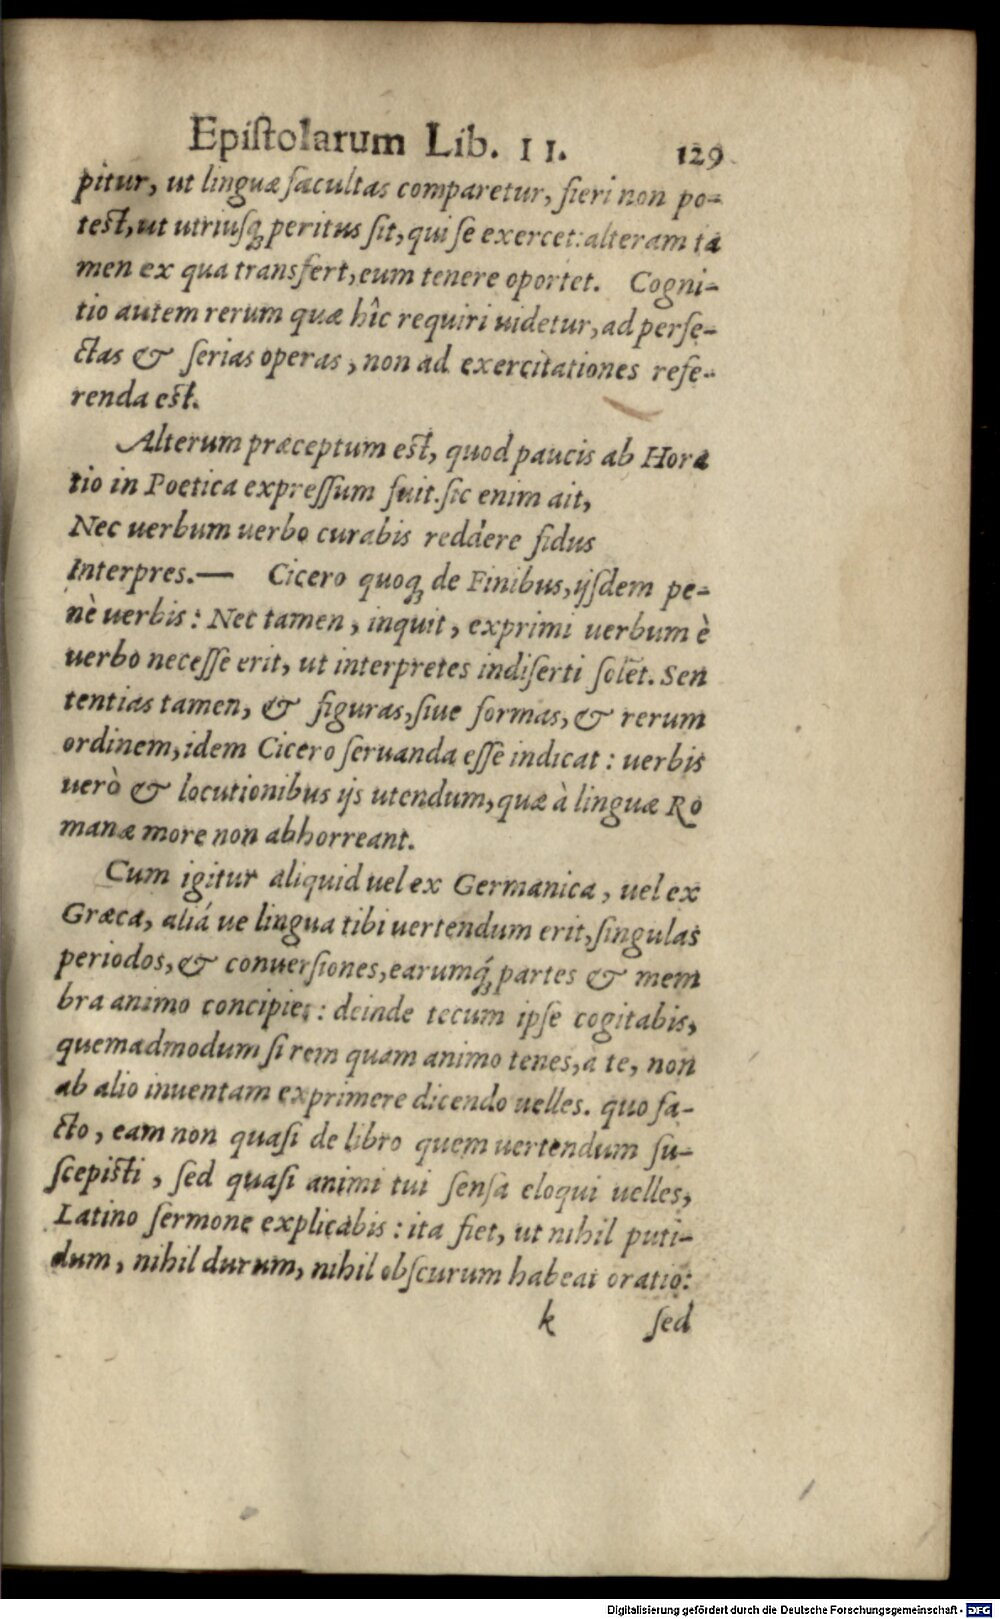 Epiſtolarum Lib. II. 129
pitur, ut linguæ facultas comparetur, fieri non po-
teſt, ut utriuſq; peritus ſit, qui ſe exercet: alteram ta
men ex qua transfert, eum tenere oportet. Cogni-
tio autem rerum quæ hîc requiri uidetur, ad perfe-
ctas & ſerias operas, non ad exercitationes refe-
renda eſt.
Alterum præceptum eſt, quod paucis ab Hora
tio in Poetica expreſſum fuit. ſic enim ait,
Nec uerbum uerbo curabis reddere fidus
Interpres.— Cicero quoq; de Finibus, ijſdem pe-
nè uerbis: Nec tamen, inquit, exprimi uerbum è
uerbo neceſſe erit, ut interpretes indiſerti ſolẽt. Sen
tentias tamen, & figuras, ſiue formas, & rerum
ordinem, idem Cicero ſeruanda eſſe indicat: uerbis
uerò & locutionibus ijs utendum, quæ à linguæ Ro
manæ more non abhorreant.
Cum igitur aliquid uel ex Germanica, uel ex
Græca, aliá ue lingua tibi uertendum erit, ſingulas
periodos, & conuerſiones, earumq́; partes & mem
bra animo concipies: deinde tecum ipſe cogitabis,
quemadmodum ſi rem quam animo tenes, a te, non
ab alio inuentam exprimere dicendo uelles. quo fa-
cto, eam non quaſi de libro quem uertendum ſu-
ſcepiſti, ſed quaſi animi tui ſenſa eloqui uelles,
Latino ſermone explicabis: ita fiet, ut nihil puti-
dum, nihil durum, nihil obſcurum habeat oratio:
k ſed
Digitalisierung gefördert durch die Deutsche Forschungsgemeinschaft - DFG